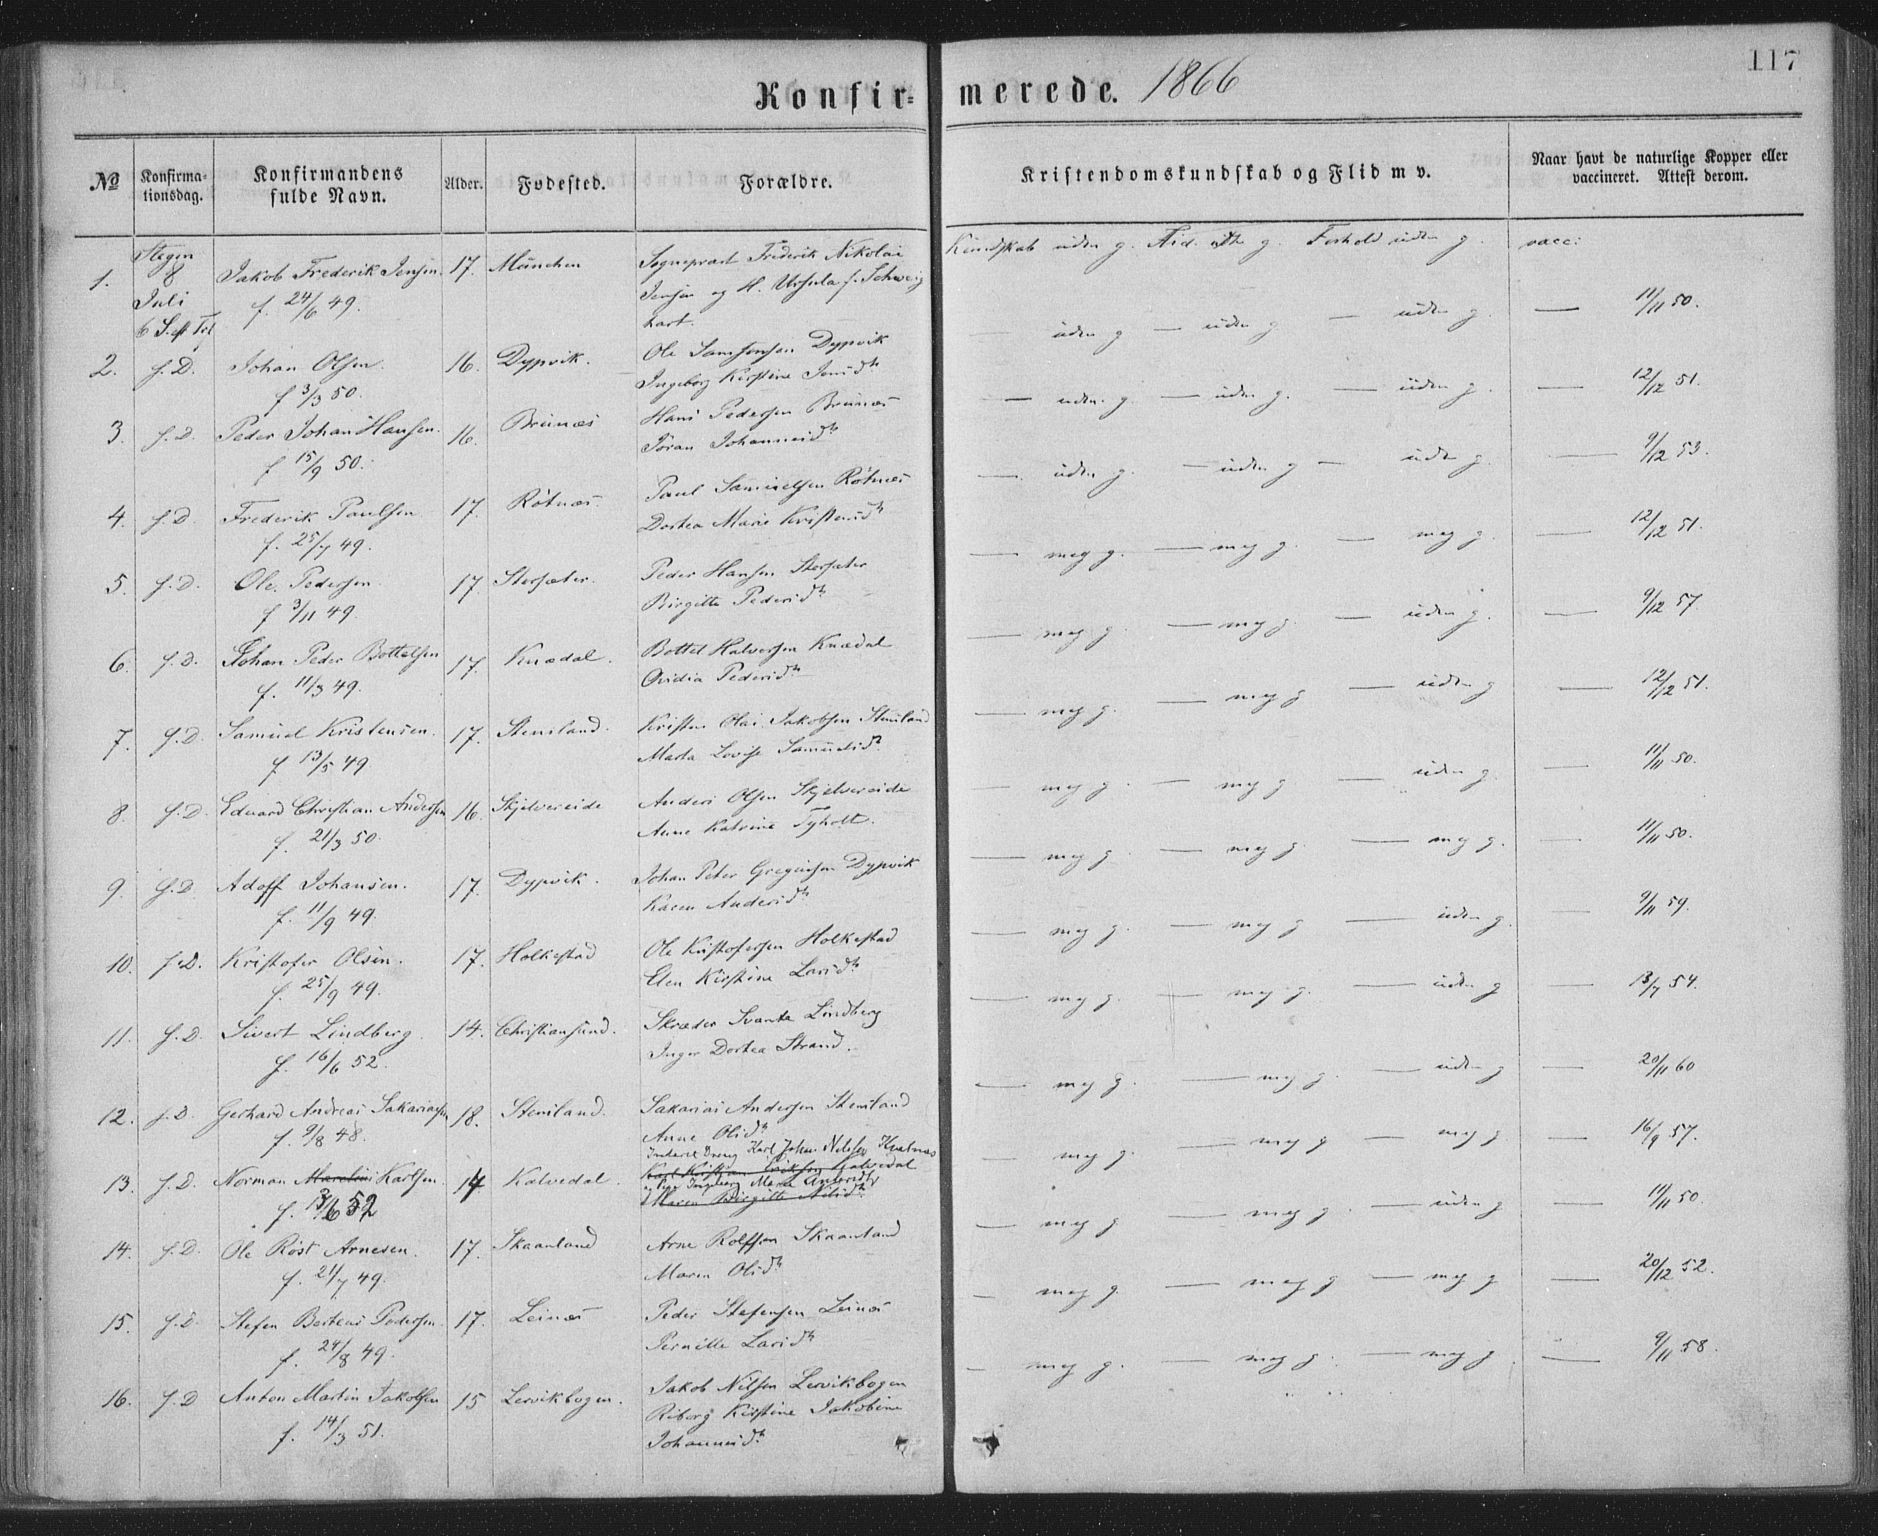 117
Konfirmerede. 1866
№ Konfirmationsdag. Konfirmandens fulde Navn. Alder. Fødested. Forældre. Kristendomskundskab og Flid m v. Naar havt de naturlige Kopper eller vaccineret. Attest derom.
1. Stegen 8 Juli 6 S. eft Tr. Jakob Frederik Jensen. 17. München Sognepræst Frederik Nikolai Kundskab uden g. Flid uden g. Forhold uden g. vacc:
f. 24/6 49. Jensen og H. Ursula f. Schweig
hart. 11/11 50.
2. f. D. Johan Olsen. 16. Dypvik. Ole Samsonsen Dypvik — uden g — uden g — uden g. —
f 3/3 50. Ingeborg Kirstine Jensdr 12/12 51.
3. f. D. Peder Johan Hansen. 16. Brunæs Hans Pedersen Brunæs — uden g. — uden g. — uden g. —
f 15/9 50. Johannesdr 9/12 53.
4. f. D. Frederik Paulsen 17. Røtnæs. Paul Samuelsen Røtnæs — uden g. — uden g — uden g. —
f. 25/7 49. Dortea Marie 12/12 51.
5. f. D. Ole Pedersen. 17. Storsæter. Peder Hansen Storsæter — meg g. — meg g. — meg g. —
f 3/11 49. Birgitte Pedersdr 9/12 57
6. f. D. Johan Peder Bottolfsen 17. Knædal. Bottel Halvorsen Knædal — meg g. — meg g. — uden g. —
f. 11/3 49. Ovidia Pedersdr 12/12 51.
7. f. D. Samuel Kristensen. 17. Stensland. Kristen Olai Jakobsen Stensland — meg g. — meg g — uden g —
f 13/5 49. Marta Lovise Samuelsdr 11/11 50.
8. f. D. Edvard Christian Andersen 16. Skjelvereide Anders Olsen Skjelvereide — meg g. — meg g — uden g. —
f. 21/3 50. Anne Katrine Tyholt. 11/11 50.
9. f. D. Adolf Johansen. 17. Dypvik. Johan Peter Gregusen Dypvik — meg g. — meg g. — meg g. —
f. 11/9 49. Karen Andersdr 9/11 59.
10. f. D. Kristofer Olsen. 17. Holkestad Ole Kristofersen Holkestad — meg g. — meg g. — uden g. —
f. 25/9 49. Elen Kirstine Larsdr 13/7 54.
11. f. D. Sivert Lindberg. 14. Christiansund. Skræder Svante Lindberg — meg g. — meg g. — uden g —
f. 16/6 52. Inger Dortea Strand. 20/11 60
12. f. D. Gerhard Andreas Sakariasen 18. Stensland. Sakarias Andersen Stensland — meg g. — meg g. — uden g —
f. 9/8 48. Anne Olsdr 16/9 57.
13. f. D. Norman Karlsen. 14 Kalvedal. Inderst Dreng Karl Johan Nilsen Kvalnæs — meg g. — meg g — meg g —
f. 13/6 52 Karl Kristian Eriksen Kalvedal
og Pige Ingeborg Marie
Maren Birgitte Nilsdr 11/11 50.
14. f. D. Ole Røst Arnesen. 17. Skaanland Arne Rolfsen Skaanland — meg g — meg g. — uden g —
f. 21/7 49. Maren Olsdr 20/12 52.
15. f. D. Stefen Berteus Pedersen 17. Leinæs Peder Stefensen Leinæs — meg g. — meg g — meg g —
f. 24/8 49. Pernille Larsdr 9/11 58.
16. f. D Anton Martin Jakobsen 15 Lervikbogen. Jakob Nilsen Lervikbogen — meg g. — meg g. — meg g. —
f. 14/3 51. Riborg Kirstine Jakobine
Johannesdr